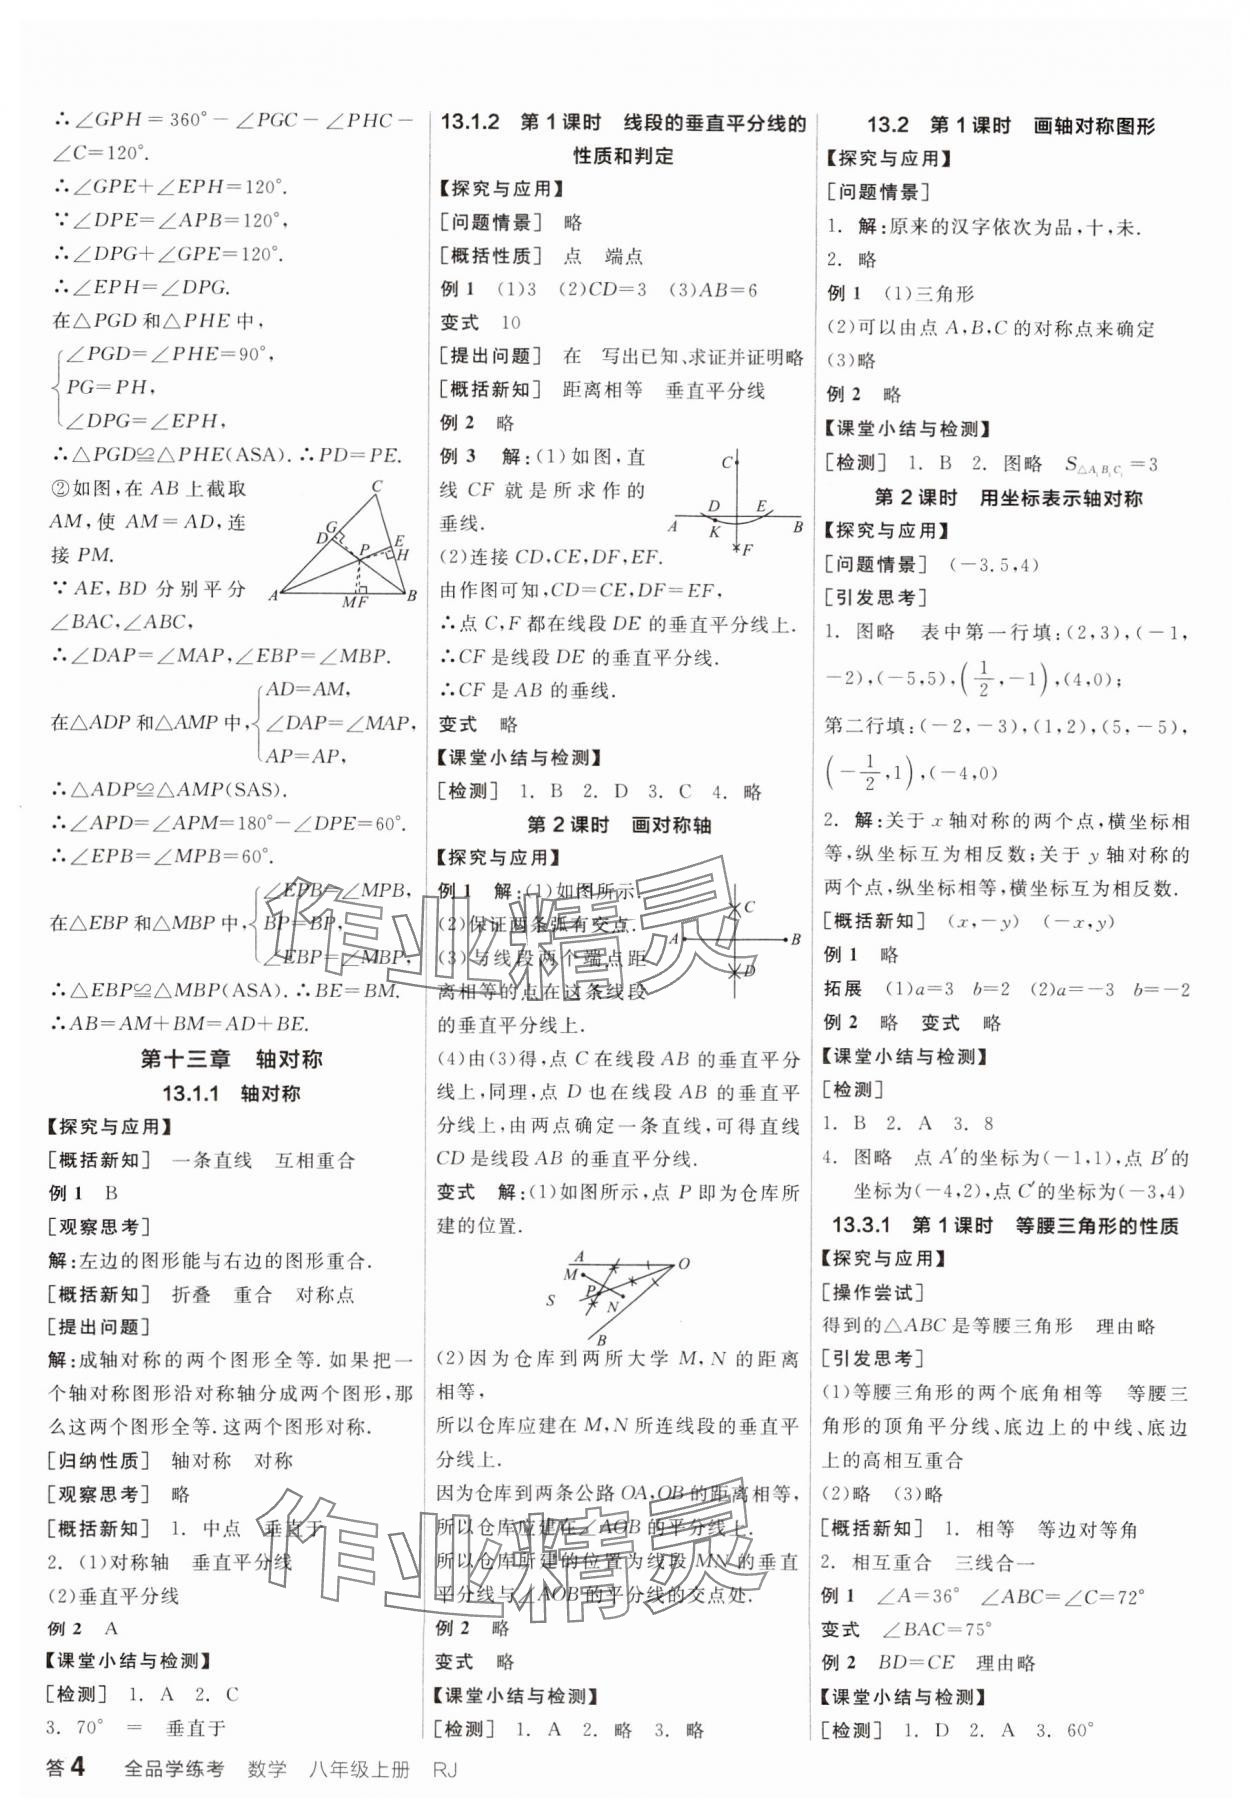 ∴∠GPH=360°-∠PGC-∠PHC-
∠C=120°.
∴∠GPE+∠EPH=120°.
∵∠DPE=∠APB=120°,
∴∠DPG+∠GPE=120°.
∴∠EPH=∠DPG.
在△PGD和△PHE中,
∠PGD=∠PHE=90°,
PG=PH,
∠DPG=∠EPH,
∴△PGD≌△PHE(ASA).∴PD=PE.
②如图,在AB上截取
AM,使AM=AD,连
接PM.
∵AE,BD分别平分
∠BAC,∠ABC,
C
G
D
P
E
H
A
M
F
B
∴∠DAP=∠MAP,∠EBP=∠MBP.
AD=AM,
在△ADP和△AMP中, ∠DAP=∠MAP,
AP=AP,
∴△ADP≌△AMP(SAS).
∴∠APD=∠APM=180°-∠DPE=60°.
∴∠EPB=∠MPB=60°.
∠EPB=∠MPB,
在△EBP和△MBP中, BP=BP,
∠EBP=∠MBP,
∴△EBP≌△MBP(ASA).∴BE=BM.
∴AB=AM+BM=AD+BE.
第十三章 轴对称
13.1.1 轴对称
【探究与应用】
[概括新知] 一条直线 互相重合
例1 B
[观察思考]
解:左边的图形能与右边的图形重合.
[概括新知] 折叠 重合 对称点
[提出问题]
解:成轴对称的两个图形全等.如果把一
个轴对称图形沿对称轴分成两个图形,那
么这两个图形全等.这两个图形对称.
[归纳性质] 轴对称 对称
[观察思考] 略
[概括新知] 1. 中点 垂直于
2. (1)对称轴 垂直平分线
(2)垂直平分线
例2 A
【课堂小结与检测】
[检测] 1. A 2. C
3. 70° = 垂直于
13.1.2 第1课时 线段的垂直平分线的
性质和判定
【探究与应用】
[问题情景] 略
[概括性质] 点 端点
例1 (1)3 (2)CD=3 (3)AB=6
变式 10
[提出问题] 在 写出已知、求证并证明略
[概括新知] 距离相等 垂直平分线
例2 略
例3 解:(1)如图,直
线CF就是所求作的
垂线.
C
D
E
A
K
B
F
(2)连接CD,CE,DF,EF.
由作图可知,CD=CE,DF=EF,
∴点C,F都在线段DE的垂直平分线上.
∴CF是线段DE的垂直平分线.
∴CF是AB的垂线.
变式 略
【课堂小结与检测】
[检测] 1. B 2. D 3. C 4. 略
第2课时 画对称轴
【探究与应用】
例1 解:(1)如图所示.
(2)保证两条弧有交点.
(3)与线段两个端点距
离相等的点在这条线段
的垂直平分线上.
C
A
B
D
(4)由(3)得,点C在线段AB的垂直平分
线上,同理,点D也在线段AB的垂直平
分线上,由两点确定一条直线,可得直线
CD是线段AB的垂直平分线.
变式 解:(1)如图所示,点P即为仓库所
建的位置.
A
O
M
P
S
N
B
(2)因为仓库到两所大学M,N的距离
相等,
所以仓库应建在M,N所连线段的垂直平
分线上.
因为仓库到两条公路OA,OB的距离相等,
所以仓库应建在∠AOB的平分线上.
所以仓库所建的位置为线段MN的垂直
平分线与∠AOB的平分线的交点处.
例2 略
变式 略
【课堂小结与检测】
[检测] 1. A 2. 略 3. 略
13.2 第1课时 画轴对称图形
【探究与应用】
[问题情景]
1. 解:原来的汉字依次为品,十,未.
2. 略
例1 (1)三角形
(2)可以由点A,B,C的对称点来确定
(3)略
例2 略
【课堂小结与检测】
[检测] 1. B 2. 图略 S△A₁B₁C₁=3
第2课时 用坐标表示轴对称
【探究与应用】
[问题情景] (-3.5,4)
[引发思考]
1. 图略 表中第一行填:(2,3),(-1,
-2),(-5,5),(1/2,-1),(4,0);
第二行填:(-2,-3),(1,2),(5,-5),
(-1/2,1),(-4,0)
2. 解:关于x轴对称的两个点,横坐标相
等,纵坐标互为相反数;关于y轴对称的
两个点,纵坐标相等,横坐标互为相反数.
[概括新知] (x,-y) (-x,y)
例1 略
拓展 (1)a=3 b=2 (2)a=-3 b=-2
例2 略 变式 略
【课堂小结与检测】
[检测]
1. B 2. A 3. 8
4. 图略 点A′的坐标为(-1,1),点B′的
坐标为(-4,2),点C′的坐标为(-3,4)
13.3.1 第1课时 等腰三角形的性质
【探究与应用】
[操作尝试]
得到的△ABC是等腰三角形 理由略
[引发思考]
(1)等腰三角形的两个底角相等 等腰三
角形的顶角平分线、底边上的中线、底边
上的高相互重合
(2)略 (3)略
[概括新知] 1. 相等 等边对等角
2. 相互重合 三线合一
例1 ∠A=36° ∠ABC=∠C=72°
变式 ∠BAC=75°
例2 BD=CE 理由略
【课堂小结与检测】
[检测] 1. D 2. A 3. 60°
作业精灵
作业精灵
答4 全品学练考 数学 八年级上册 RJ